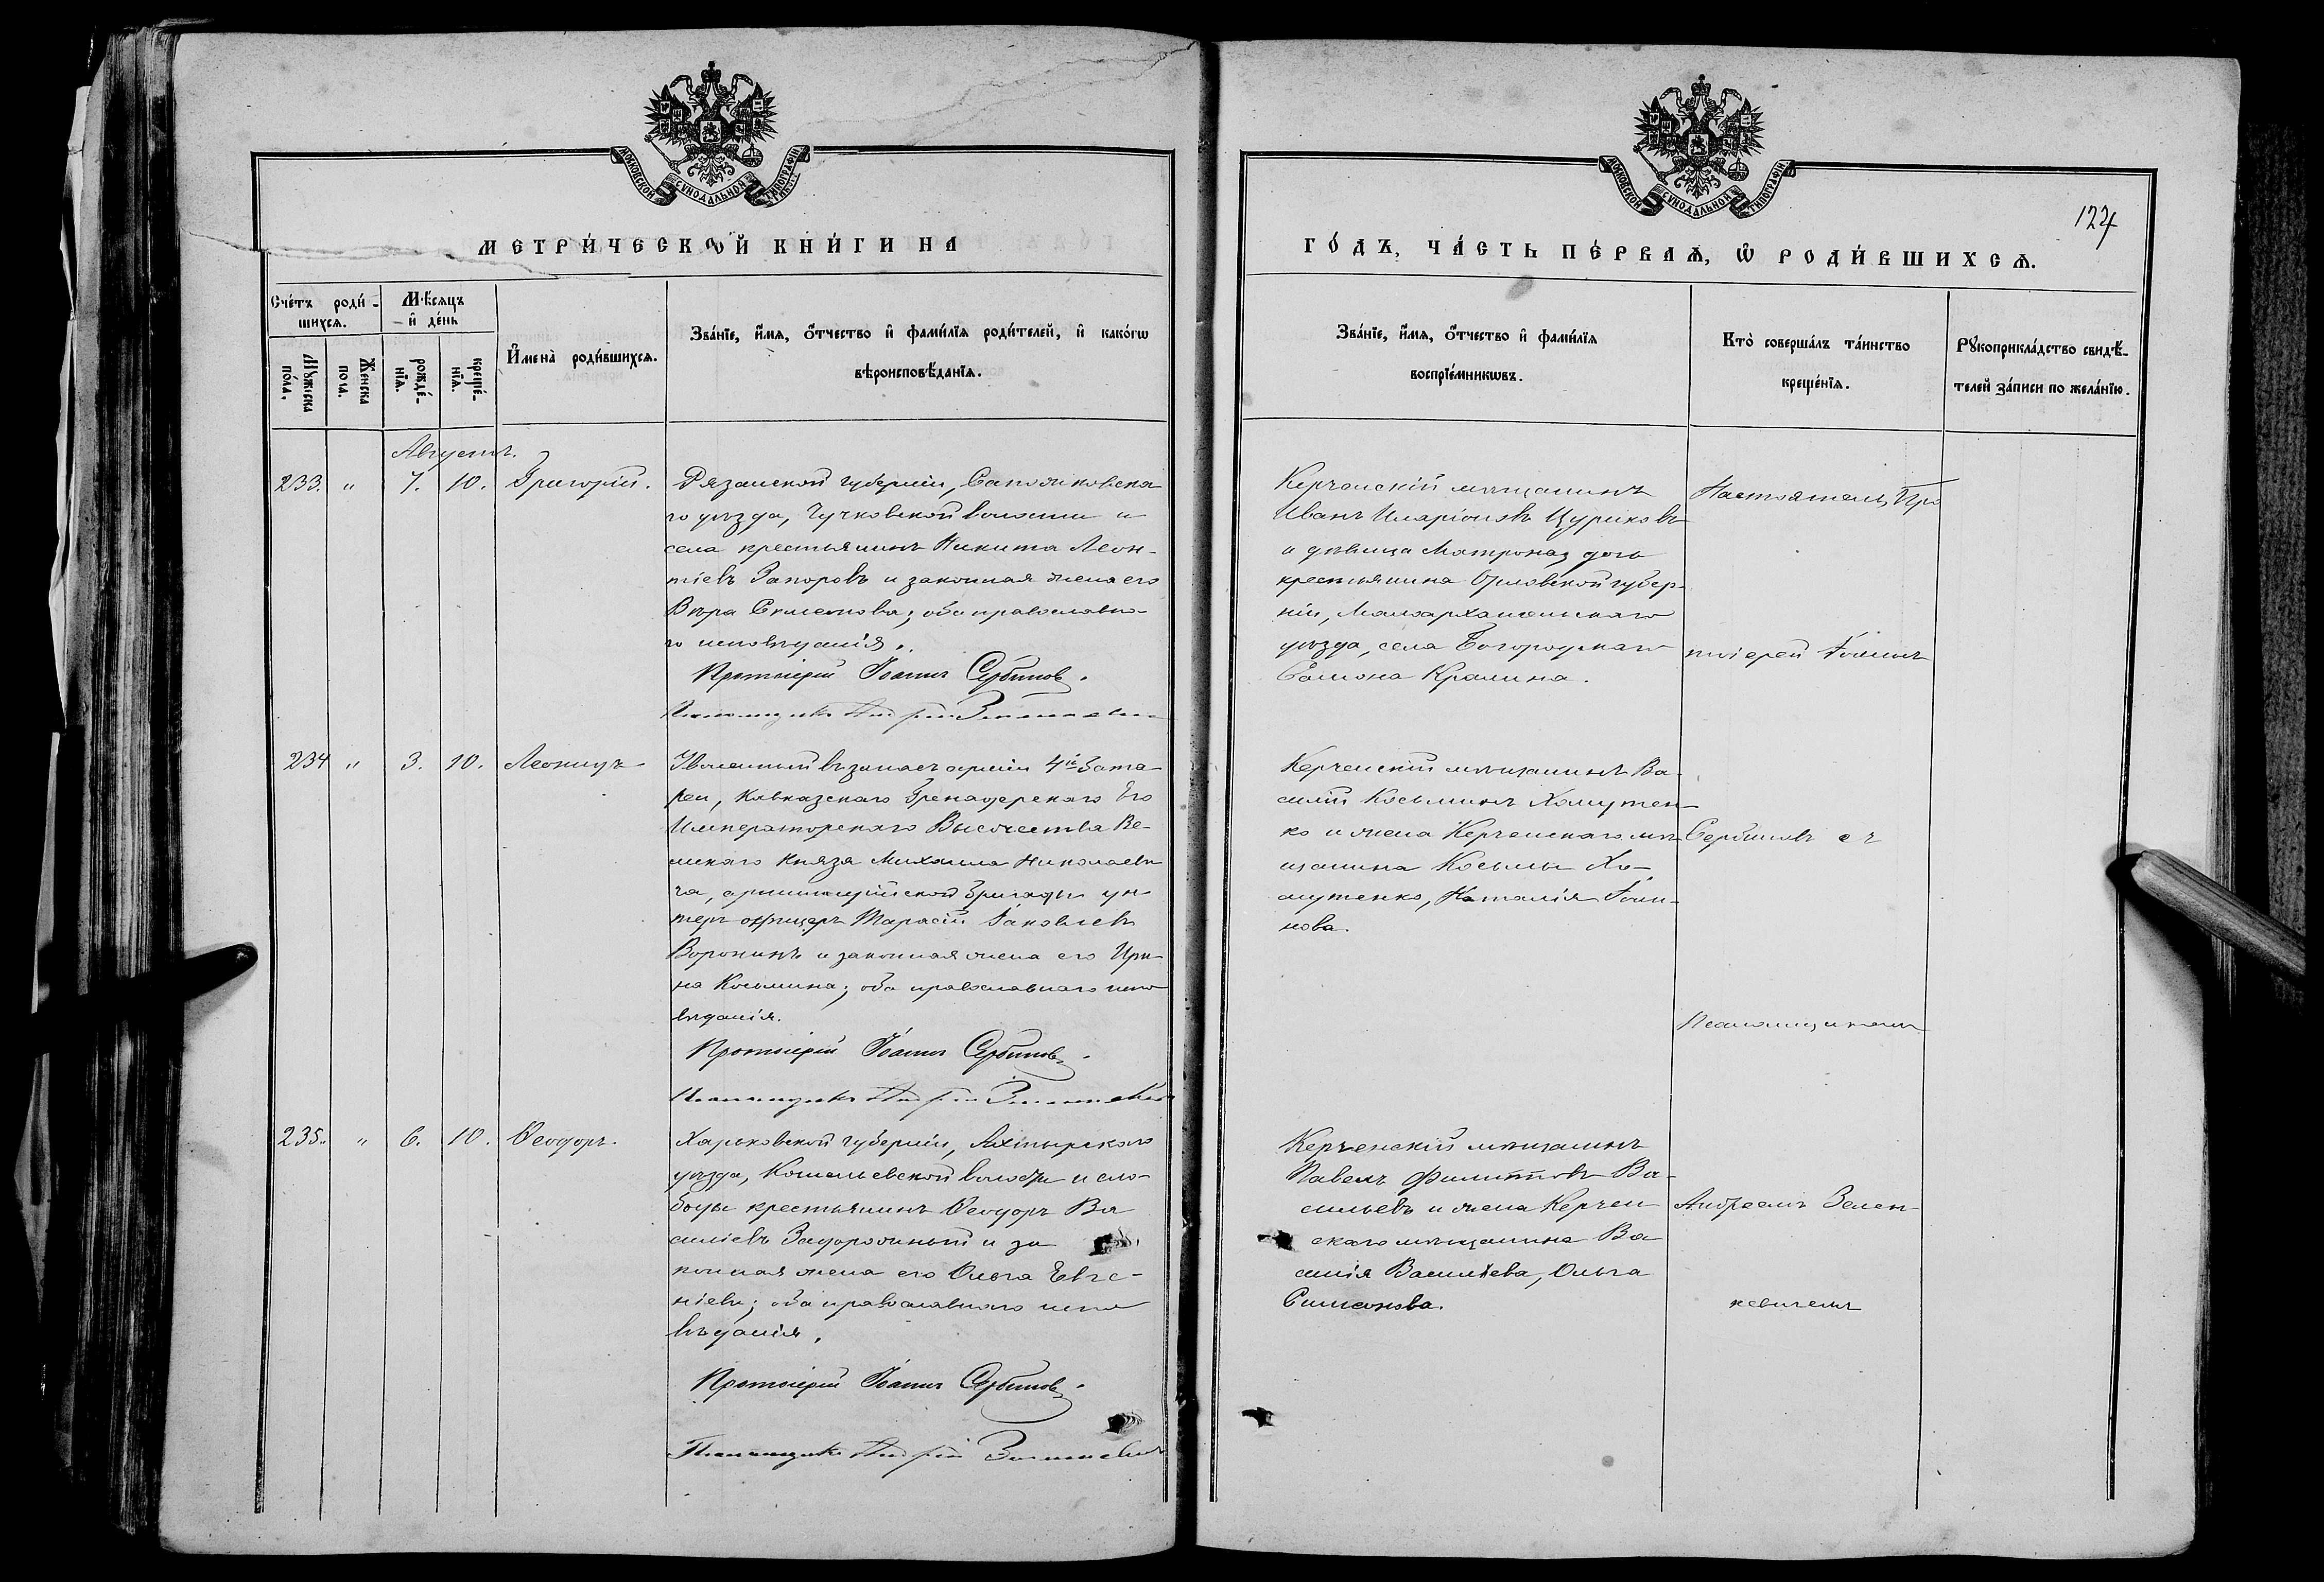 МОСКОВСКОЙ СѴНОДАЛЬНОЙ ТИПОГРАФІИ
МЕТРИ́ЧЕСКОЙ КНИ́ГИ НА
Сче́тъ роди́-
шихся.
Мѣ́сяцъ
и҆ де́нь
Мꙋжеска
по́ла.
Женска
пола.
рожде́-
нїѧ.
креще́-
нїѧ.
И҆мена̀ роди́вшихсѧ.
Зва́нїе, и҆́мѧ, ѻ҆́тчество и҆ фами́лїѧ роди́телей, и҆ како́гѡ
вѣроисповѣ́данїѧ.
Августъ.
233. " 7. 10. Григорій.
Рязанской губерніи, Сапожковска
го уѣзда, Чучковской волости и
села крестьянинъ Никита Леон-
тіевъ Запоровъ и законная жена его
Вѣра Симеонова; оба православна-
го исповѣданія.
Протоіерей Іоаннъ Сербиновъ.
Псаломщикъ Андрей Зеленкевичъ
234 " 3. 10. Леонидъ
Уволенный въ запасъ арміи 4й бата
реи, Кавказскаго Гренадерскаго Его
Императорскаго Высочества Ве-
ликаго Князя Михаила Николаеви
ча, артиллерійской бригады ун-
теръ офицеръ Тарасій Іаковлевъ
Воронинъ и законная жена его Ири-
на Косьмина; оба православнаго испо
вѣданія.
Протоіерей Іоаннъ Сербиновъ.
Псаломщикъ Андрей Зеленкевичъ
235. " 6. 10. Ѳеодоръ.
Харьковской губерніи, Ахтырскаго
уѣзда, Котельевской волости и сло-
боды крестьянинъ Ѳеодоръ Ва
силіевъ Задорожный и за
конная жена его Ольга Евге-
ніева; оба православнаго испо
вѣданія.
Протоіерей Іоаннъ Сербиновъ.
Псаломщикъ Андрей Зеленкевичъ
МОСКОВСКОЙ СѴНОДАЛЬНОЙ ТИПОГРАФІИ
124
ГО́ДЪ, ЧА́СТЬ ПЕ́РВАѦ, Ѽ РОДИ́ВШИХСѦ.
Зва́нїе, и҆́мѧ, ѻ҆́тчество и҆ фами́лїѧ
воспрїе́мникѡвъ.
Кто̀ соверша́лъ та́инство
креще́нїѧ.
Рꙋкоприкла́дство свидѣ́-
телей за́писи по жела́нїю.
Керченскій мѣщанинъ
Иванъ Иларіоновъ Цуриковъ
и дѣвица Матрона, дочь
крестьянина Орловской губер-
ніи, Малоархангельскаго
уѣзда, села Богородицкаго
Самсона Кралина.
Керченскій мѣщанинъ Ва-
силій Косьминъ Хомутен-
ко и жена Керченскаго мѣ-
щанина Косьмы Хо-
мутенко, Наталія Іоан-
нова.
Керченскій мѣщанинъ
Павелъ Филипповъ Ва-
сильевъ и жена Керчен
скаго мѣщанина Ва
силія Васильева, Ольга
Симеонова.
Настоятель, Про
тоіерей Іоаннъ
Сербиновъ съ
Псаломщикомъ
Андреемъ Зелен-
кевичемъ